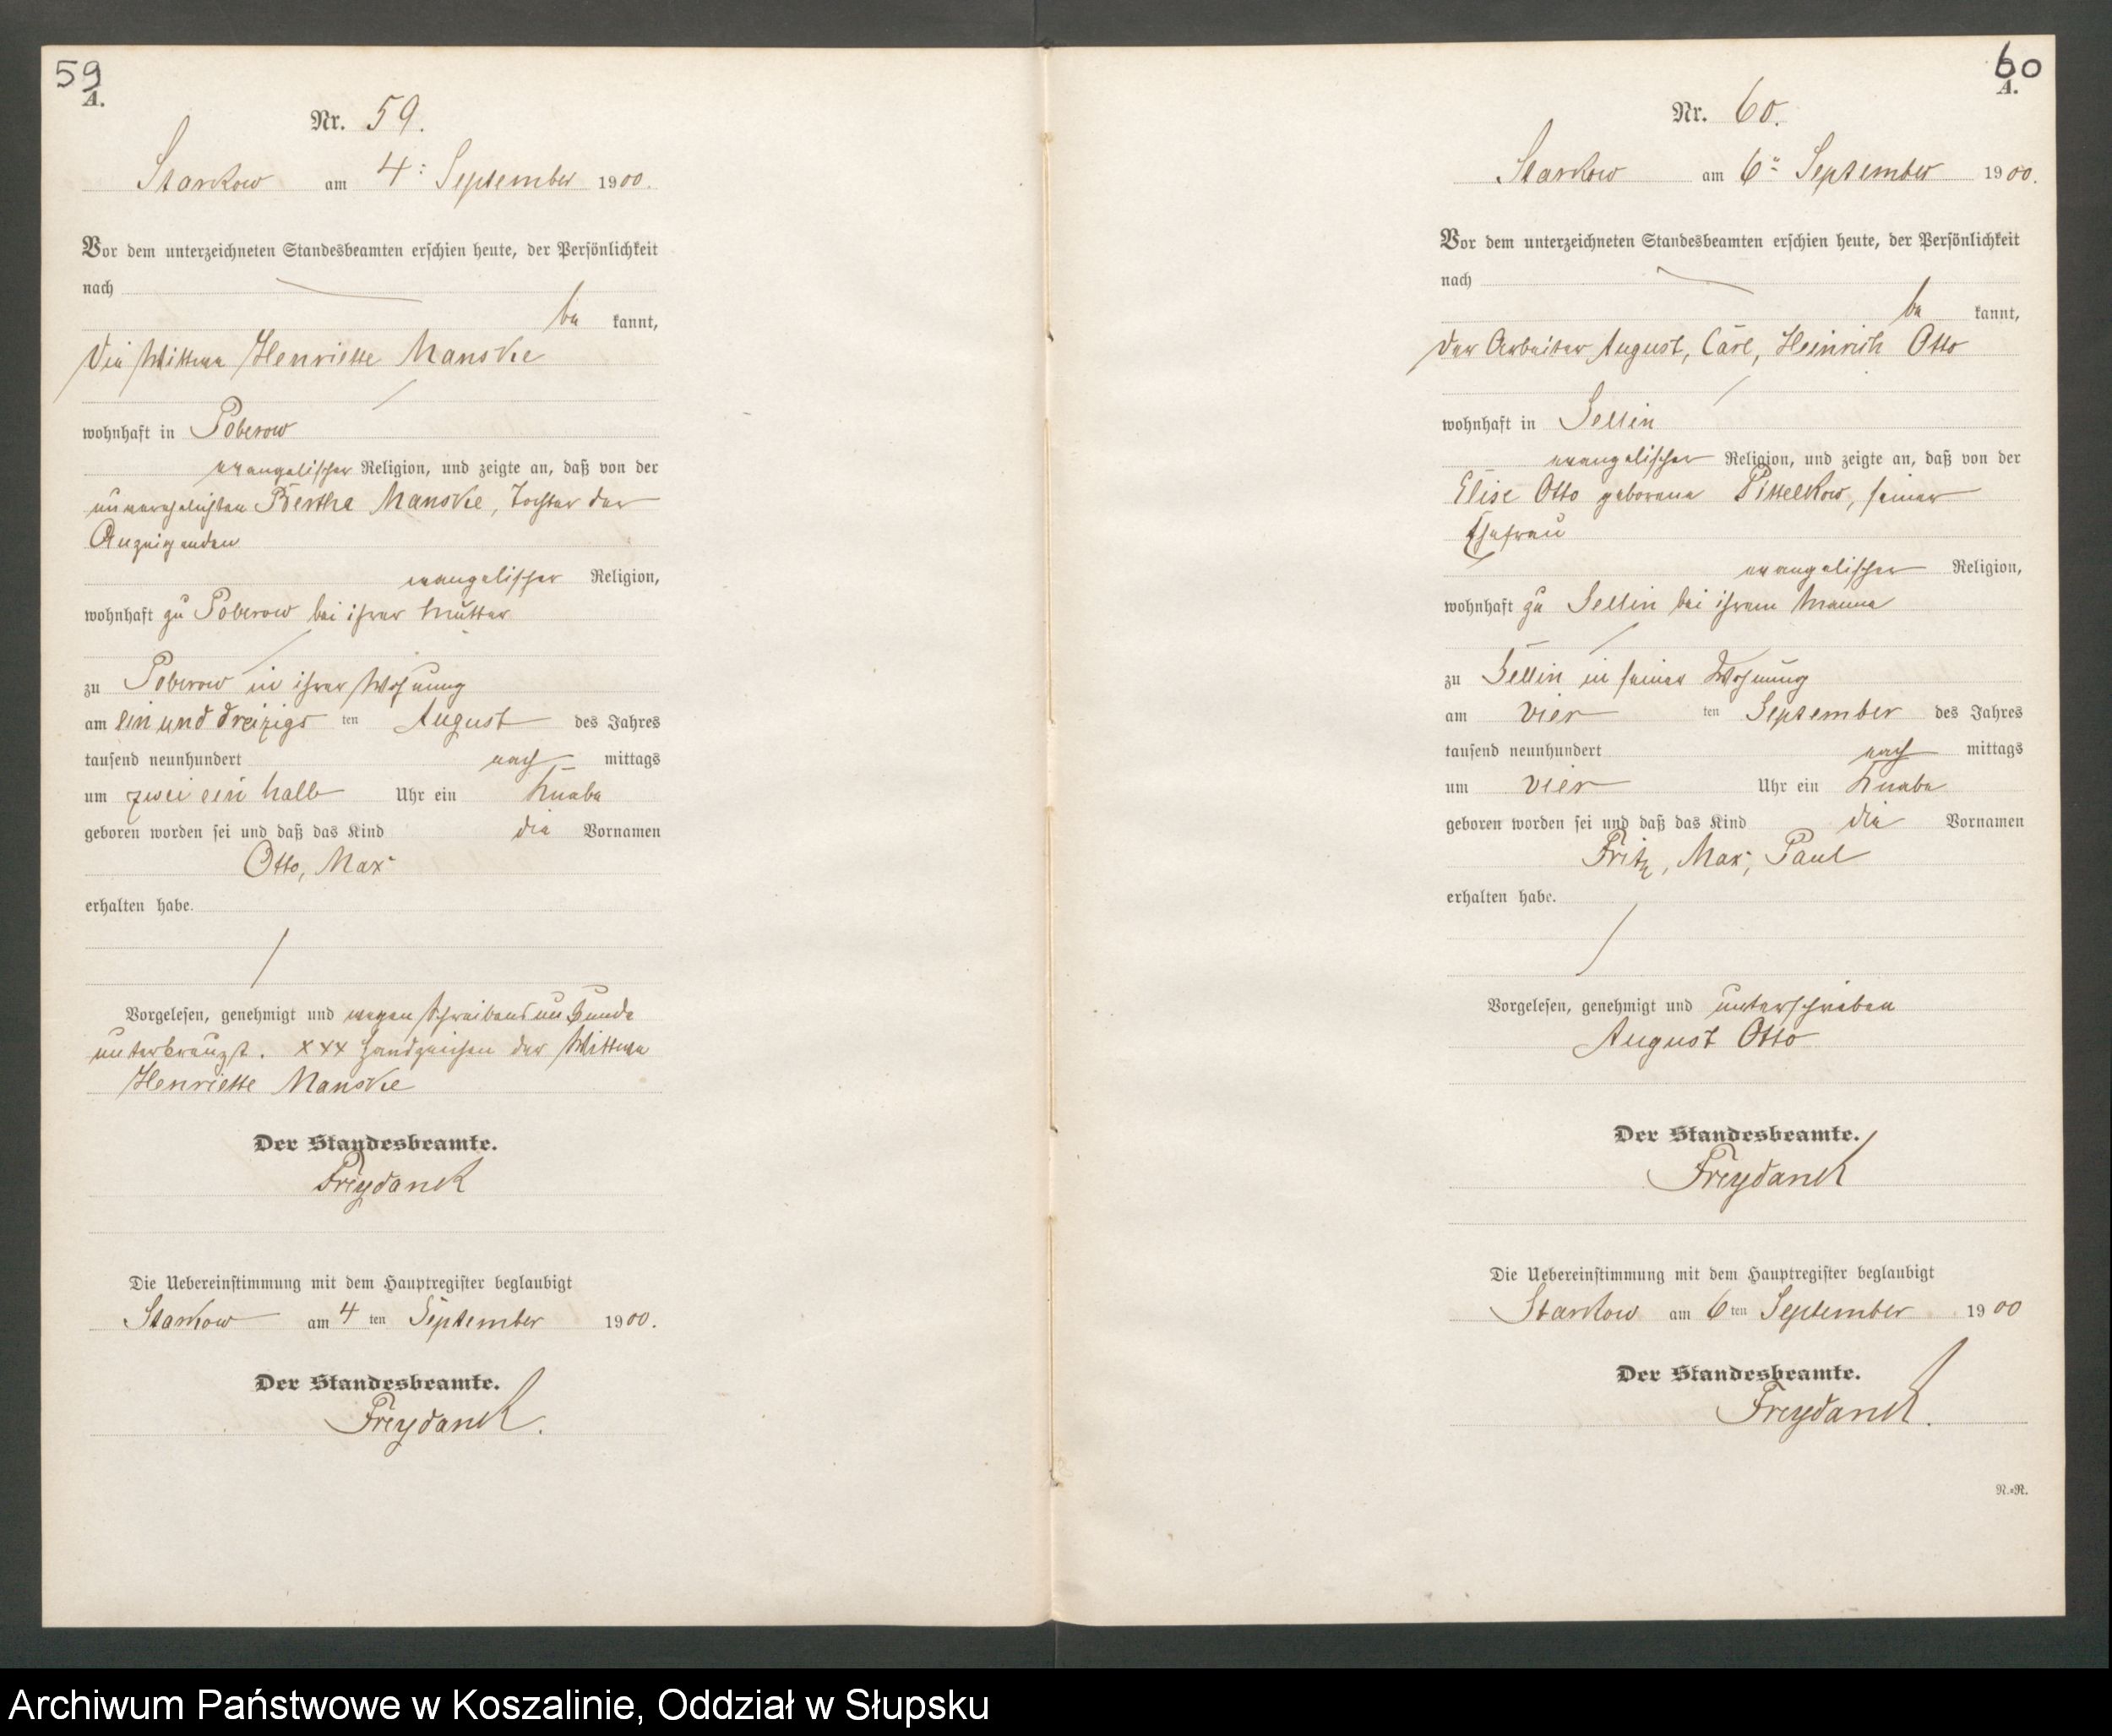 59
A.
Nr. 59.
Starkow am 4. September 1900.
Vor dem unterzeichneten Standesbeamten erschien heute, der Persönlichkeit
nach
be kannt,
die Wittwe Henriette Manske
wohnhaft in Poberow
evangelischer Religion, und zeigte an, daß von der
unverehelichten Bertha Manske, Tochter der
Anzeigenden
evangelischer Religion,
wohnhaft zu Poberow bei ihrer Mutter
zu Poberow in ihrer Wohnung
am ein und dreizigs ten August des Jahres
tausend neunhundert nach mittags
um zwei ein halb Uhr ein Knabe
geboren worden sei und daß das Kind die Vornamen
Otto, Max
erhalten habe.
Vorgelesen, genehmigt und wegen Schreibensunkunde
unterkreuzt. xxx Handzeichen der Wittwe
Henriette Manske
Der Standesbeamte.
Freydank
Die Uebereinstimmung mit dem Hauptregister beglaubigt
Starkow am 4 ten September 1900.
Der Standesbeamte.
Freydank.
60
A.
Nr. 60.
Starkow am 6. September 1900.
Vor dem unterzeichneten Standesbeamten erschien heute, der Persönlichkeit
nach
be kannt,
der Arbeiter August, Carl, Heinrich Otto
wohnhaft in Sellin
evangelischer Religion, und zeigte an, daß von der
Elise Otto geborene Pittelkow, seiner
Ehefrau
evangelischer Religion,
wohnhaft zu Sellin bei ihrem Manne
zu Sellin in seiner Wohnung
am vier ten September des Jahres
tausend neunhundert nach mittags
um vier Uhr ein Knabe
geboren worden sei und daß das Kind die Vornamen
Fritz, Max, Paul
erhalten habe.
Vorgelesen, genehmigt und unterschrieben
August Otto
Der Standesbeamte.
Freydank
Die Uebereinstimmung mit dem Hauptregister beglaubigt
Starkow am 6 ten September 1900
Der Standesbeamte.
Freydank.
N.=R.
Archiwum Państwowe w Koszalinie, Oddział w Słupsku